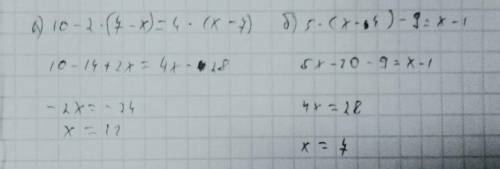 а) 10 - 2 · (7 - x) = 4 · (x - 7)
10 - 14 + 2x = 4x - 28
- 2x = - 24
x = 12
б) 5 · (x - 4) - 9 = x - 1
5x - 20 - 9 = x - 1
4x = 28
x = 7